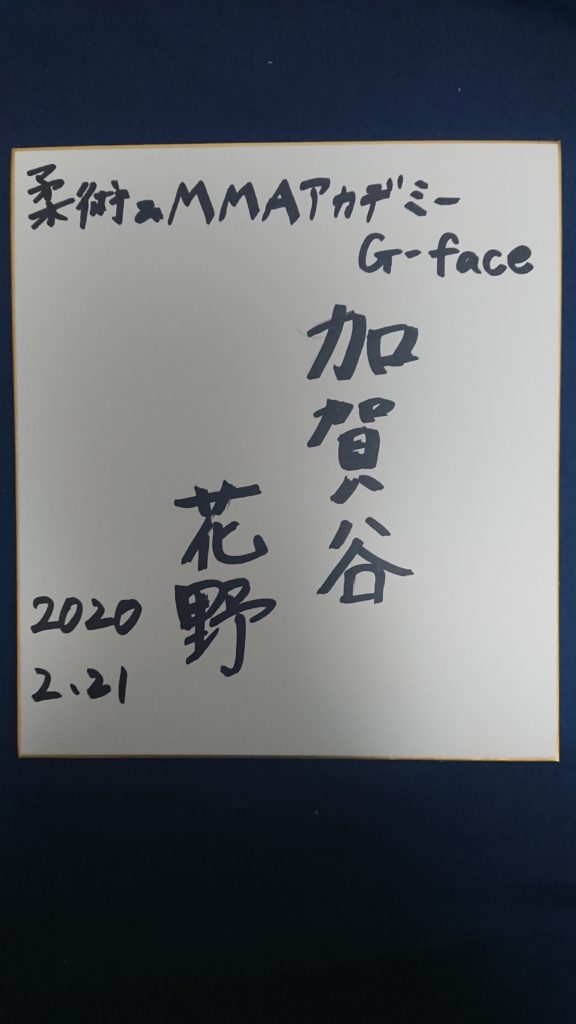 柔術&MMAアカデミー
G-face
加賀谷
花野
2020
2.21